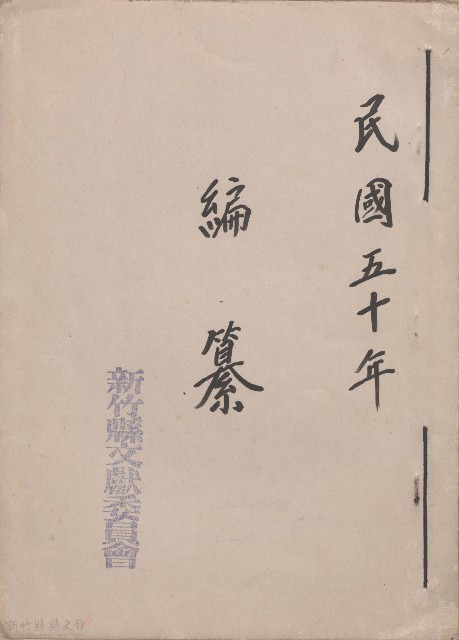 民國五十年
編纂
新竹縣文獻委員會
新竹縣縣史館